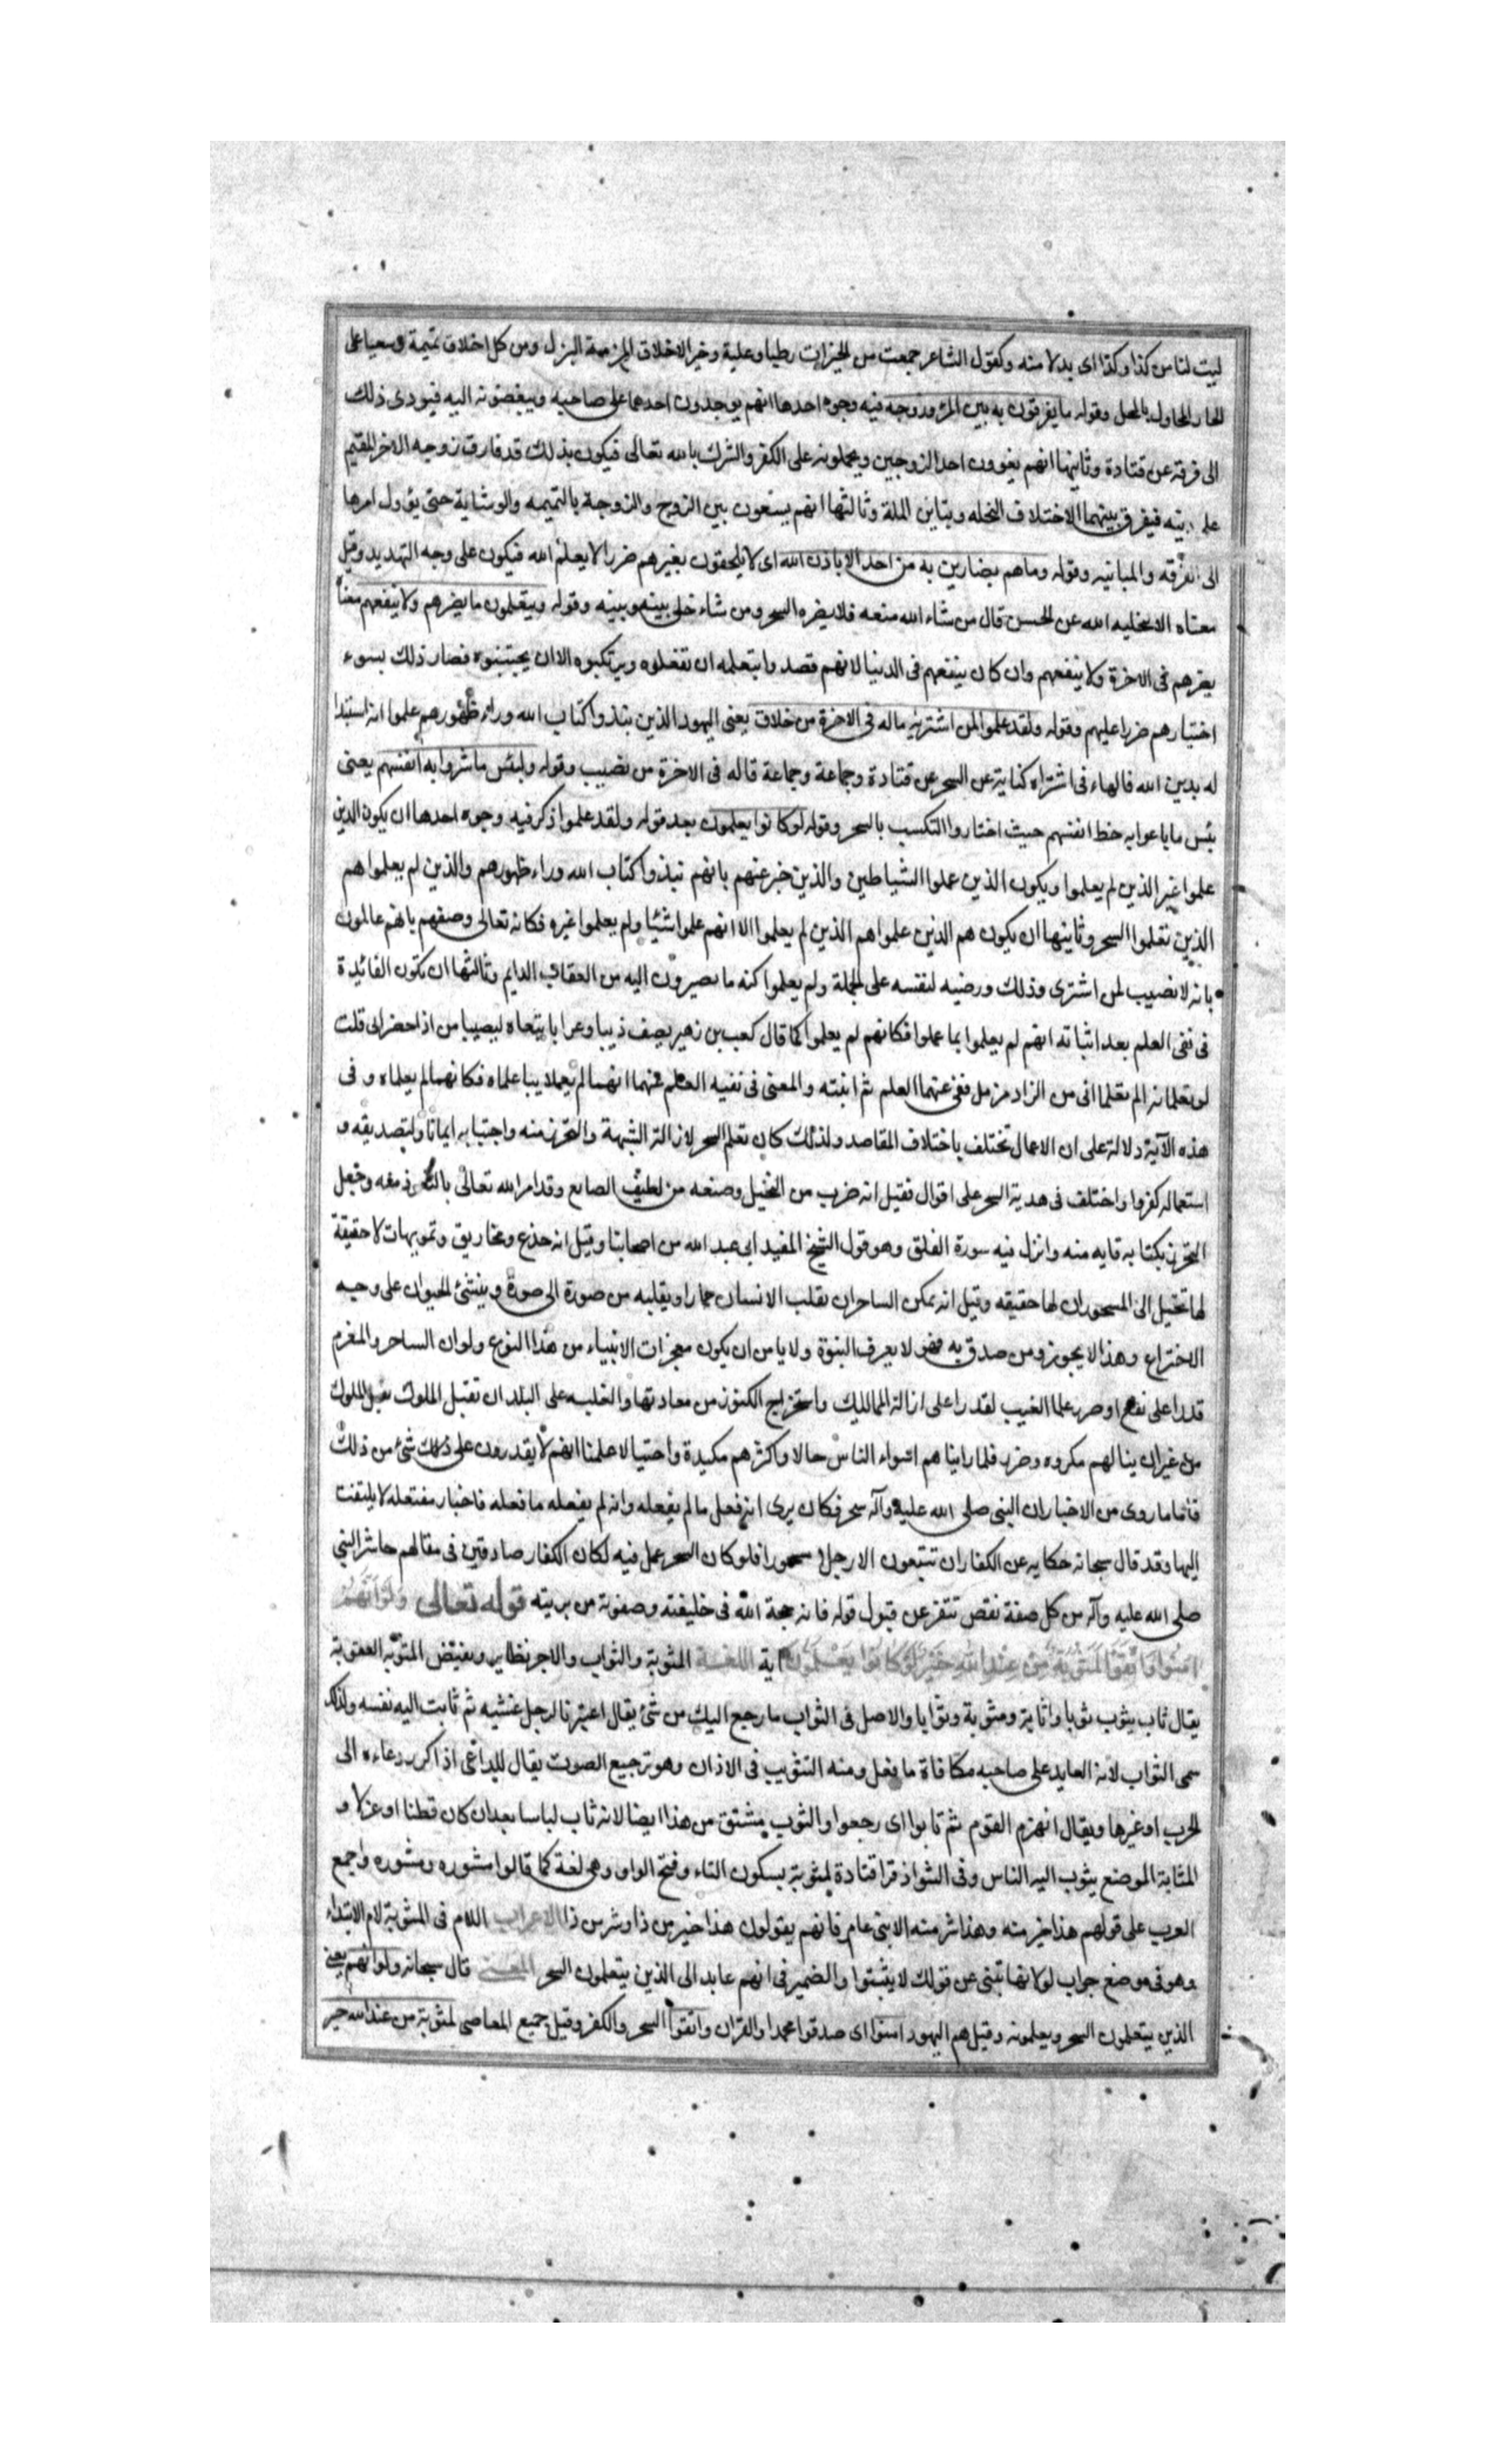 ليت لنا من كذا وكذا اى بدلا منه وكقول الشاعر جمعت من الخيرات رطبا وعلبة وخير الاخلاق المزممة البزل ومن كل اخلاق تميمة وسعيا على
الجار المجاور بالمحل وقوله ما يفرقون به بين المرء وزوجه فيه وجوه احدها انهم يوجدون احدهما على صاحبه ويبغضونه اليه فيودى ذلك
الى فرقة عن قتادة وثانيها انهم يغوون احد الزوجين ويحملونه على الكفر والشرك بالله تعالى فيكون بذلك قد فارق زوجه الاخر المقيم
على دينه فيفرق بينهما الاختلاف النحله وتباين الملة وثالثها انهم يسعون بين الزوج والزوجة بالنميمه والوشاية حتى يؤول امرها
الى الفرقه والمباينه وقوله وما هم بضارين به من احد الا باذن الله اى لا يلحقون بغيرهم ضررا الا يعلم الله فيكون على وجه التهديد وقيل
معناه الا بتخليه الله عن الحسن قال من شاء الله منعه فلا يضره السحر ومن شاء خلى بينه وبينه وقوله ويتعلمون ما يضرهم ولا ينفعهم معناه
يضرهم فى الاخرة ولا ينفعهم وان كان ينفعهم فى الدنيا لانهم قصدوا بتعلمه ان تفعلوه ويرتكبوه الا ان يجتنبوه فصار ذلك بسوء
اختيارهم ضررا عليهم وقوله ولقد علموا لمن اشتريه ماله فى الاخرة من خلاق يعنى اليهود الذين نبذوا كتاب الله وراء ظهورهم علموا لمن استبدا
له بدين الله فالهاء فى اشتراه كناية عن السحر عن قتادة وجماعة وجماعة قاله فى الاخرة من نصيب وقوله ولبئس ما شروا به انفسهم يعنى
بئس ما باعوا به حظ انفسهم حيث اختاروا التكسب بالسحر وقوله لو كانوا يعلمون بعد قوله ولقد علموا ذكر فيه وجوه احدها ان يكون الذين
علموا غير الذين لم يعلموا ويكون الذين عملوا الشياطين والذين خبر عنهم بانهم نبذوا كتاب الله وراء ظهورهم والذين لم يعلموا هم
الذين تعلموا السحر وثانيها ان يكون هم الذين علموا هم الذين لم يعلموا الا انهم علموا شيئا ولم يعلموا غيره فكانه تعالى وصفهم بانهم عالمون
بانه لا نصيب لمن اشترى وذلك ورضيه لنفسه على الجملة ولم يعلموا كنه ما يصيرون اليه من العقاب الدايم وثالثها ان تكون الفائدة
فى نفى العلم بعد اثباته انهم لم يعلموا بما عملوا فكانهم لم يعلموا كما قال كعب بن زهير يصف ذيبا وغرابا يتبعاه ليصيبا من اذا حضرانى قلت
لو تعلمانه الم تعلما انى من الزاد مرمل فنفى عنهما العلم ثم اثبته والمعنى فى نفيه العلم عنهما انهما لم يعملا بما علماه فكانهما لم يعلماه وفى
هذه الآية دلالة على ان الاعمال تختلف باختلاف المقاصد ولذلك كان تعلم السحر لازالة الشبهة والتحرز منه واجتنابه ايمانا ولتصديقه و
استعماله كفروا واختلف فى هدية السحر على اقوال فقيل انه ضرب من التخيل وصنعه من لطيف الصايع وقد امر الله تعالى بالتعوذ منه وجعل
التحرز بكتابه وقايه منه وانزل فيه سورة الفلق وهو قول الشيخ المفيد ابى عبد الله من اصحابنا وقيل انه خدع ومخاريق وتمويهات لا حقيقة
لها تخيل الى المسحور ان لها حقيقه وقيل انه يمكن الساحر ان تقلب الانسان حمارا ويقلبه من صورة الى صورة وينشئ الحيوان على وجه
الاختراع وهذا لا يجوز ومن صدق به فهو لا يعرف النبوة ولا يامن ان يكون معجزات الانبياء من هذا النوع ولو ان الساحر والمعزم
قدرا على نفع او ضر وعلما الغيب لقدرا على ازالة الممالك واستخراج الكنوز من معادنها والغلبه على البلدان بقتل الملوك
من غير ان ينالهم مكروه وضر فلما راينا هم اسواء الناس حالا واكثرهم مكيدة واحتيالا علمنا انهم لا يقدرون على ذلك شئ من ذلك
فاما ما روى من الاخبار ان النبى صلى الله عليه وآله سحر فكان يرى انه فعل ما لم يفعله وانه لم يفعله ما فعله فاخبار مفتعله لا يلتفت
اليها وقد قال سبحانه حكايه عن الكفار ان تتبعون الا رجلا مسحورا فلو كان السحر عمل فيه لكان الكفار صادقين فى مقالهم حاشر النبى
صلى الله عليه وآله من كل صفة نقص تنفر عن قبول قوله فانه حجة الله فى خليقته وصفوته من بريته قوله تعالى ولو انهم
امنوا واتقوا لمثوبة من عند الله خير لو كانوا يعلمون آية اللغـــة المثوبة والثواب والاجر نظاير ونقيض المثوبة العقوبة
يقال ثاب يثوب ثوبا واثابة ومثوبة وثوابا والاصل فى الثواب ما رجع اليك من شئ يقال اعترت الرجل غشيه ثم ثابت اليه نفسه ولذلك
سمى الثواب لانه العايد على صاحبه مكافاة ما فعل ومنه التثويب فى الاذان وهو ترجيع الصوت يقال للداعى اذا كرر دعاءه الى
الحرب او غيرها ويقال انهزم القوم ثم ثابوا اى رجعوا والثوب مشتق من هذا ايضا لانه ثاب لباسا بعد ان كان قطنا او غزلا و
المثابة الموضع يثوب اليه الناس وفى الشواذ قرا قتادة لمثوبة بسكون الثاء وفتح الواو وهى لغة كما قالوا مشوره ومشوره واجمع
العرب على قولهم هذا خير منه وهذا شر منه الا بنى عامر فانهم يقولون هذا خير من ذا وشر من ذا الاعراب اللام فى المثوبة لام الابتداء
وهو فى موضع جواب لو لانها تنبئ عن قولك لا يثبتوا والضمير فى انهم عايد الى الذين يتعلمون السحر المعنـــى قال سبحانه ولو انهم يعنى
الذين يتعلمون السحر ويعلمونه وقيل هم اليهود امنوا اى صدقوا محمدا والقران واتقوا السحر والكفر وقيل جميع المعاصى لمثوبة من عند الله خير